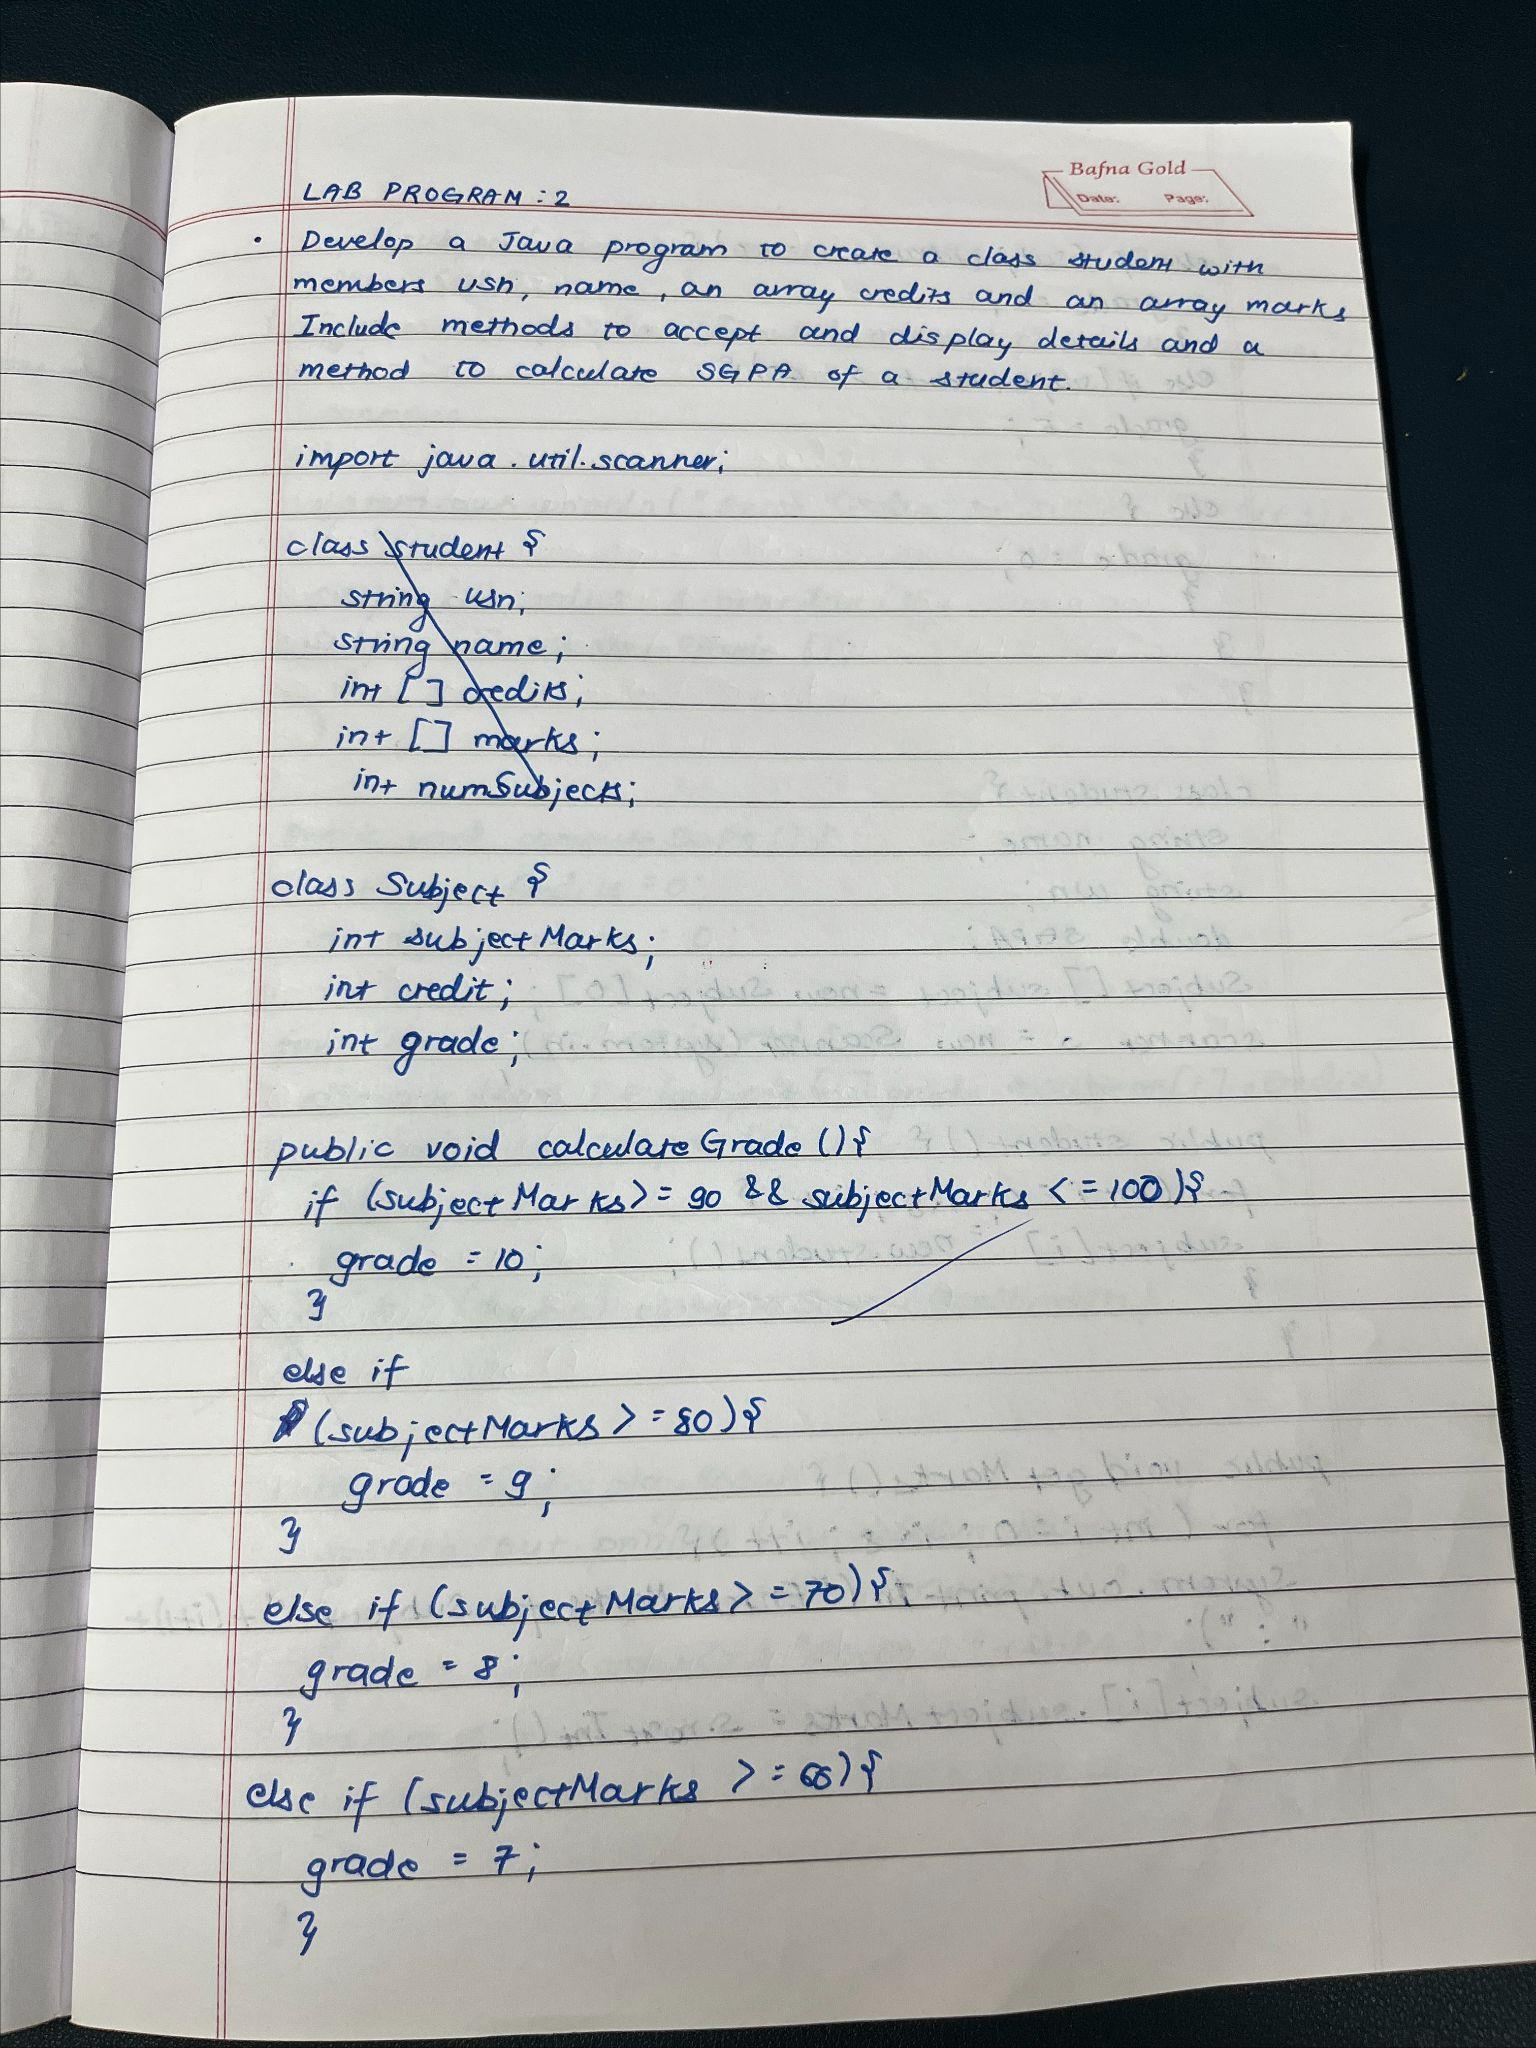 Bafna Gold
Date: Page:
LAB PROGRAM : 2
• Develop a Java program to create a class student with
members usn, name, an array credits and an array marks
Include methods to accept and display details and a
method to calculate SGPA of a student.
import java.util.scanner;
class student {
string usn;
string name;
int [] credits;
int [] marks;
int numSubjects;
class Subject {
int subjectMarks;
int credit;
int grade;
public void calculateGrade (){
if (subjectMarks >= 90 && subjectMarks <= 100){
grade = 10;
}
else if
(subjectMarks >= 80){
grade = 9;
}
else if (subjectMarks >= 70){
grade = 8;
}
else if (subjectMarks >= ){
grade = 7;
}